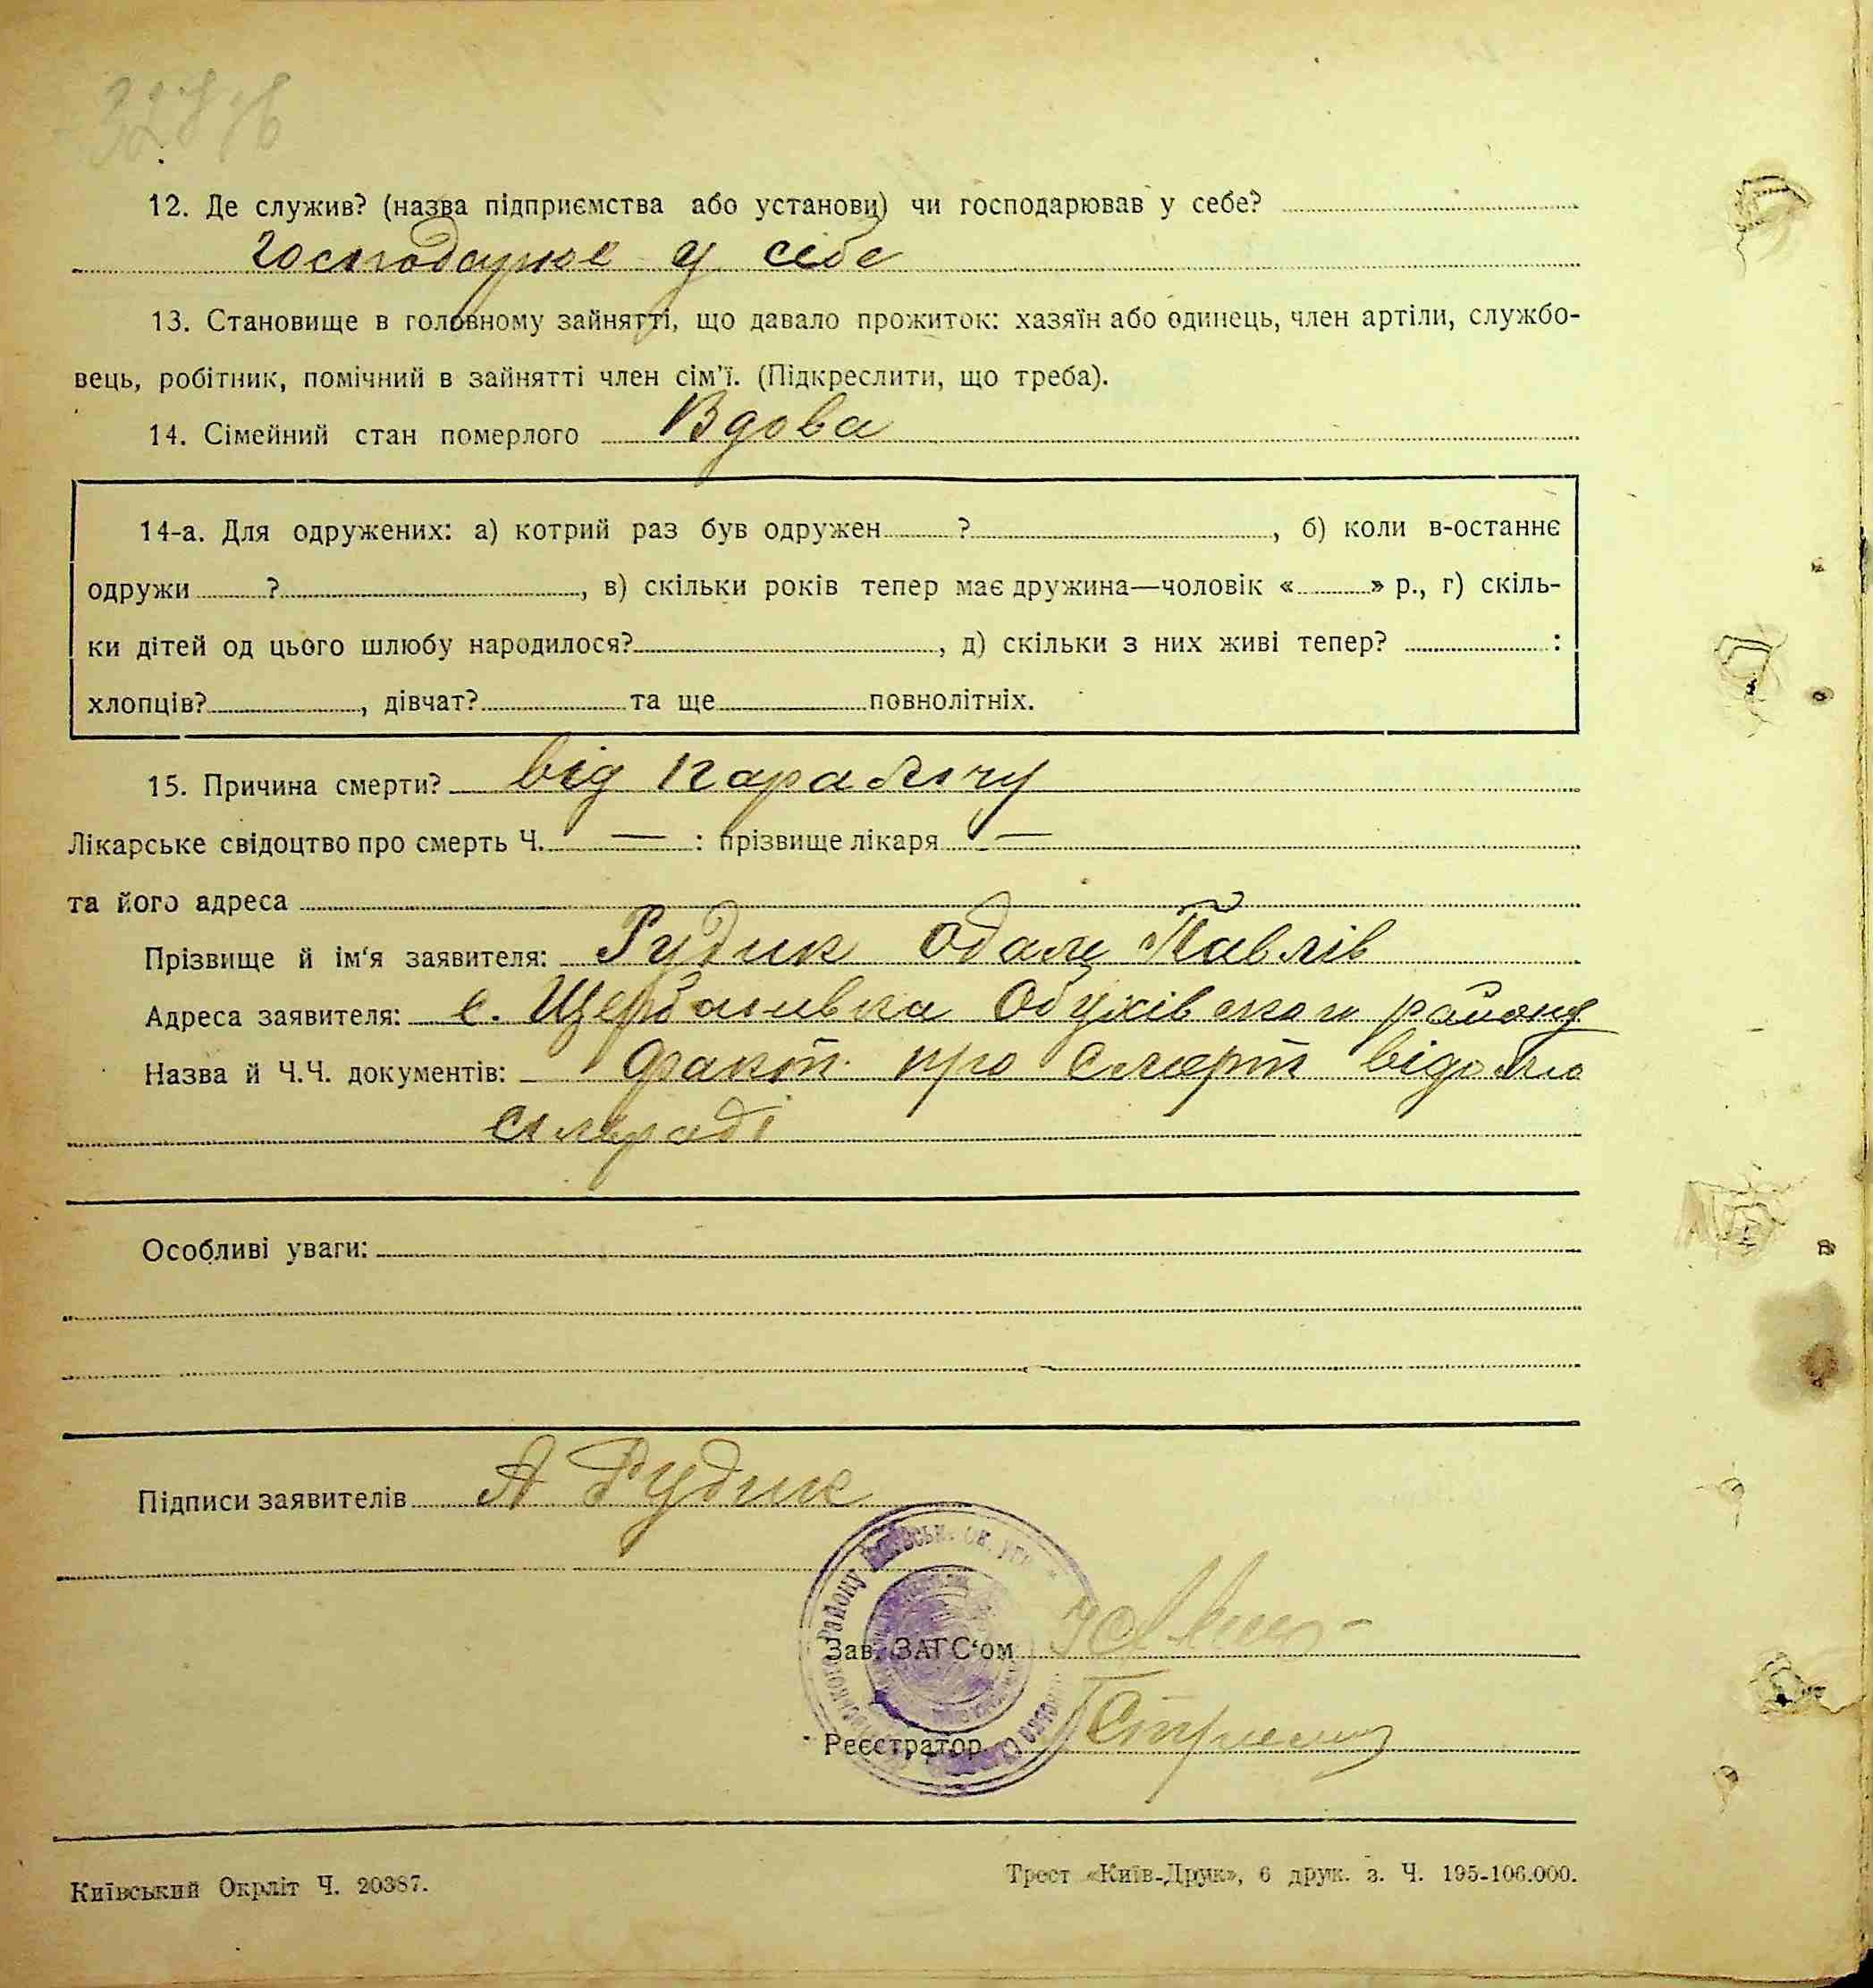 12. Де служив? (назва підприємства або установи) чи господарював у себе?
господарює у сібе
13. Становище в головному зайнятті, що давало прожиток: хазяїн або одинець, член артіли, службо-
вець, робітник, помічний в зайнятті член сім'ї. (Підкреслити, що треба).
14. Сімейний стан померлого Вдова
14-а. Для одружених: а) котрий раз був одружен ? , б) коли в-останнє
одружи ? , в) скільки років тепер має дружина—чоловік « » р., г) скіль-
ки дітей од цього шлюбу народилося? , д) скільки з них живі тепер? :
хлопців? , дівчат? та ще повнолітніх.
15. Причина смерти? від паралічу
Лікарське свідоцтво про смерть Ч. — : прізвище лікаря —
та його адреса
Прізвище й ім'я заявителя: Рудик Адам Павлів
Адреса заявителя: с. Щербанівка Обухівського району
Назва й Ч.Ч. документів: Факт про смерть відомо
сільраді
Особливі уваги:
Підписи заявителів А Рудик
Зав. ЗАГС'ом
Реєстратор
Київський Окрліт Ч. 20387.
Трест «Київ-Друк», 6 друк. з. Ч. 195-106.000.